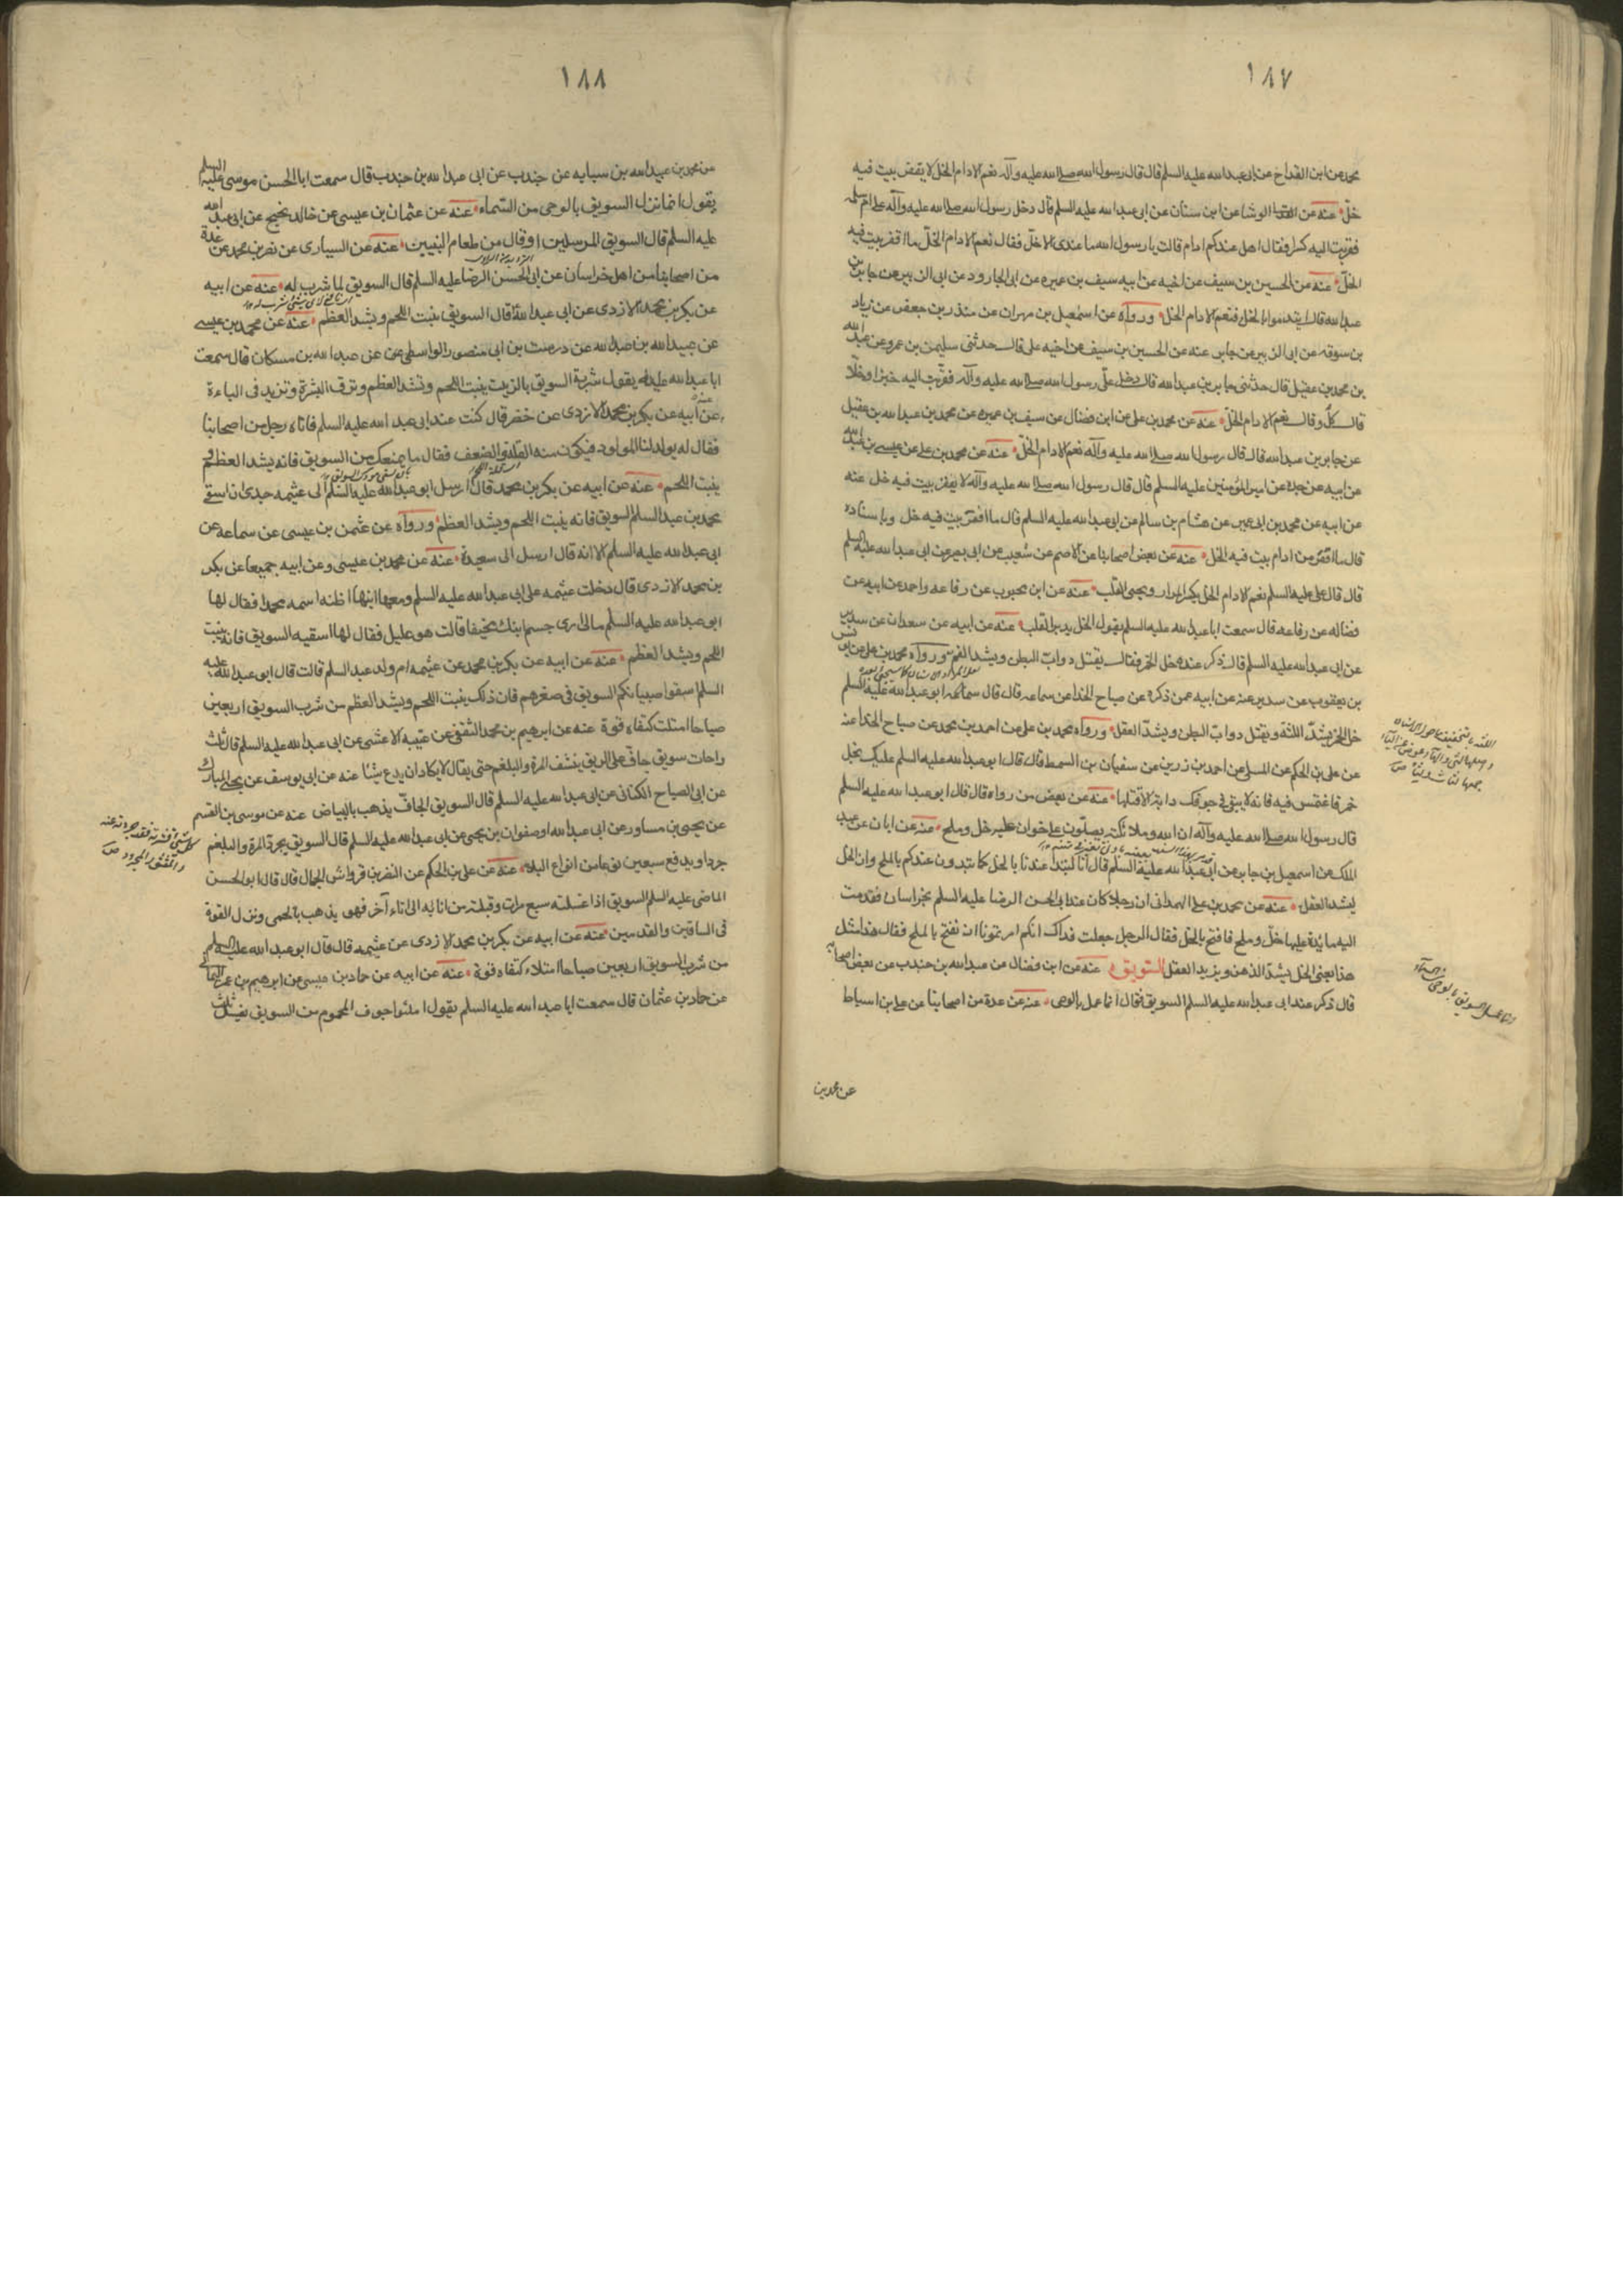 ١٨٧
محمد عن ابن القداح عن ابى عبدالله عليه السلم قال قال رسول الله صلى الله عليه وآله نعم الادام الخل لا يقفر بيت فيه
خل عنه عن الوشا عن ابن سنان عن ابى عبدالله عليه السلم قال دخل رسول الله صلى الله عليه وآله على ام سلمه
فقربت اليه كسرا فقال هل عندكم ادام قالت يا رسول الله ما عندى الا خل فقال نعم الادام الخل ما اقفر بيت فيه
الخل عنه عن الحسين بن سيف عن اخيه عن ابيه سيف بن عميره عن ابى الجارود عن ابى الزبير عن جابر بن
عبدالله قال ايتدموا بالخل فنعم الادام الخل ورواه عن اسمعيل بن مهران عن منذر بن جعفر عن زياد
بن سوقه عن ابى الزبير عن جابر عنه عن الحسين بن سيف عن اخيه على قال حدثنى سليمن بن عمرو عن عبدالله
بن محمد بن عقيل قال حدثنى جابر بن عبدالله قال دخل على رسول الله صلى الله عليه وآله فقربت اليه خبزا وخلا
قال كل وقال نعم الادام الخل عنه عن محمد بن على عن ابن فضال عن سيف بن عميره عن محمد بن عبدالله بن عقيل
عن جابر بن عبدالله قال قال رسول الله صلى الله عليه وآله نعم الادام الخل عنه عن محمد بن على عن عيسى بن عبدالله
عن ابيه عن جده عن امير المؤمنين عليه السلم قال قال رسول الله صلى الله عليه وآله لا يقفر بيت فيه خل عنه
عن ابيه عن محمد بن ابى عمير عن هشام بن سالم عن ابى عبدالله عليه السلم قال ما اقفر بيت فيه خل وباسناده
قال ما اقفر من ادام بيت فيه الخل عنه عن بعض اصحابنا عن الاصم عن شعيب عن ابى بصير عن ابى عبدالله عليه السلم
قال قال على عليه السلم نعم الادام الخل يكسر المرار ويحيى القلب عنه عن ابن محبوب عن رفاعه واحمد عن ابيه عن
فضاله عن رفاعه قال سمعت ابا عبدالله عليه السلم يقول الخل ينير القلب عنه عن ابيه عن سعدان عن سدير
عن ابى عبدالله عليه السلم قال ذكر عنده خل الخمر فقال يقتل دواب البطن ويشد الفم ورواه محمد بن على عن يونس
بن يعقوب عن سدير عنه عن ابيه عمن ذكره عن صباح الحذا عن سماعه قال قال ابو عبدالله عليه السلم
خل الخمر يشد اللثة ويقتل دواب البطن ويشد العقل ورواه محمد بن على عن احمد بن محمد عن صباح الحذا عنه
عن على بن الحكم عن المسلى عن احمد بن زرين عن سفيان بن السمط قال قال ابو عبدالله عليه السلم عليك بخل
خمر فاغتمس فيه فانه لا يبقى فى جوفك دابة الا قتلها عنه عن بعض من رواه قال قال ابو عبدالله عليه السلم
قال رسول الله صلى الله عليه وآله ان الله وملائكته يصلون على خوان عليه خل وملح عنه عن ابان عن عبد
الملك عن اسمعيل بن جابر عن ابى عبدالله عليه السلم قال انا لنبدا عندنا بالخل كما تبدون عندكم بالملح وان الخل
ليشد العقل عنه عن محمد بن على الهمدانى ان رجلا كان عند ابى الحسن الرضا عليه السلم بخراسان فقدمت
اليه مائدة عليها خل وملح فافتتح بالخل فقال الرجل جعلت فداك انكم امرتمونا ان نفتتح بالملح فقال هذا مثل
هذا يعنى الخل يشد الذهن ويزيد العقل السويق عنه عن ابن فضال عن عبدالله بن جندب عن بعض اصحابه
قال ذكر عند ابى عبدالله عليه السلم السويق فقال انما عمل بالوحى عنه عن عدة من اصحابنا عن على بن اسباط
عن محمد بن
١٨٨
عن محمد بن عبيدالله بن سيابه عن جندب عن ابى عبدالله بن جندب قال سمعت ابا الحسن موسى عليه السلم
يقول انما نزل السويق بالوحى من السماء عنه عن عثمان بن عيسى عن خالد بن نجيح عن ابى عبدالله
عليه السلم قال السويق طعام المرسلين او قال من طعام النبيين عنه عن السيارى عن نضر بن محمد عن عدة
من اصحابنا من اهل خراسان عن ابى الحسن الرضا عليه السلم قال السويق لما شرب له عنه عن ابيه
عن بكر بن محمد الازدى عن ابى عبدالله قال السويق ينبت اللحم ويشد العظم عنه عن محمد بن عيسى
عن عبيدالله بن عبدالله عن درست بن ابى منصور الواسطى عن عبدالله بن مسكان قال سمعت
ابا عبدالله عليه السلم يقول شربة السويق بالزيت ينبت اللحم وتشد العظم وترق البشرة وتزيد فى الباءة
عنه عن ابيه عن بكر بن محمد الازدى عن خضر قال كنت عند ابى عبدالله عليه السلم فاتاه رجل من اصحابنا
فقال له يولد لنا المولود فيكون منه القلة والضعف فقال ما يمنعك من السويق فانه يشد العظم
ينبت اللحم عنه عن ابيه عن بكر بن محمد قال ارسل ابو عبدالله عليه السلم الى عثيمه جدتى ان اسقى
محمد بن عبد السلم السويق فانه ينبت اللحم ويشد العظم ورواه عن عثمن بن عيسى عن سماعه عن
ابى عبدالله عليه السلم الا انه قال ارسل الى سعيدة عنه عن محمد بن عيسى وعن ابيه جميعا عن بكر
بن محمد الازدى قال دخلت عثيمه على ابى عبدالله عليه السلم ومعها ابنها اظنه اسمه محمد فقال لها
ابو عبدالله عليه السلم مالى ارى جسم ابنك نحيفا قالت هو عليل فقال لها اسقيه السويق فانه ينبت
اللحم ويشد العظم عنه عن ابيه عن بكر بن محمد عن عثيمه ام ولد عبد السلم قالت قال ابو عبدالله عليه
السلم اسقوا صبيانكم السويق فى صغرهم فان ذلك ينبت اللحم ويشد العظم من شرب السويق اربعين
صباحا امتلت كتفاه قوة عنه عن ابرهيم بن محمد الثقفى عن قتيبه الاعشى عن ابى عبدالله عليه السلم قال ثلث
راحات سويق جاف على الريق ينشف المرة والبلغم حتى يقال لا يكاد ان يدع شيئا عنه عن ابى يوسف عن يحيى بن المبارك
عن ابى الصباح الكنانى عن ابى عبدالله عليه السلم قال السويق الجاف يذهب بالبياض عنه عن موسى بن القسم
عن يحيى بن مساور عن ابى عبدالله او صفوان بن يحيى عن ابى عبدالله عليه السلم قال السويق يجرد المرة والبلغم
جردا ويدفع سبعين نوعا من انواع البلاء عنه عن على بن الحكم عن النضر بن قرواش الجمال قال قال ابو الحسن
الماضى عليه السلم السويق اذا غسلته سبع مرات وقبلته من انائه الى اناء آخر فهو يذهب بالحمى وينزل القوة
فى الساقين والقدمين عنه عن ابيه عن بكر بن محمد الازدى عن عثيمه قال قال ابو عبدالله عليه السلم
من شرب السويق اربعين صباحا امتلاء كتفاه قوة عنه عن ابيه عن حماد بن عيسى عن ابرهيم بن عمر اليمانى
عن حماد بن عثمان قال سمعت ابا عبدالله عليه السلم يقول املئوا جوف المحموم من السويق يغسل ثلث